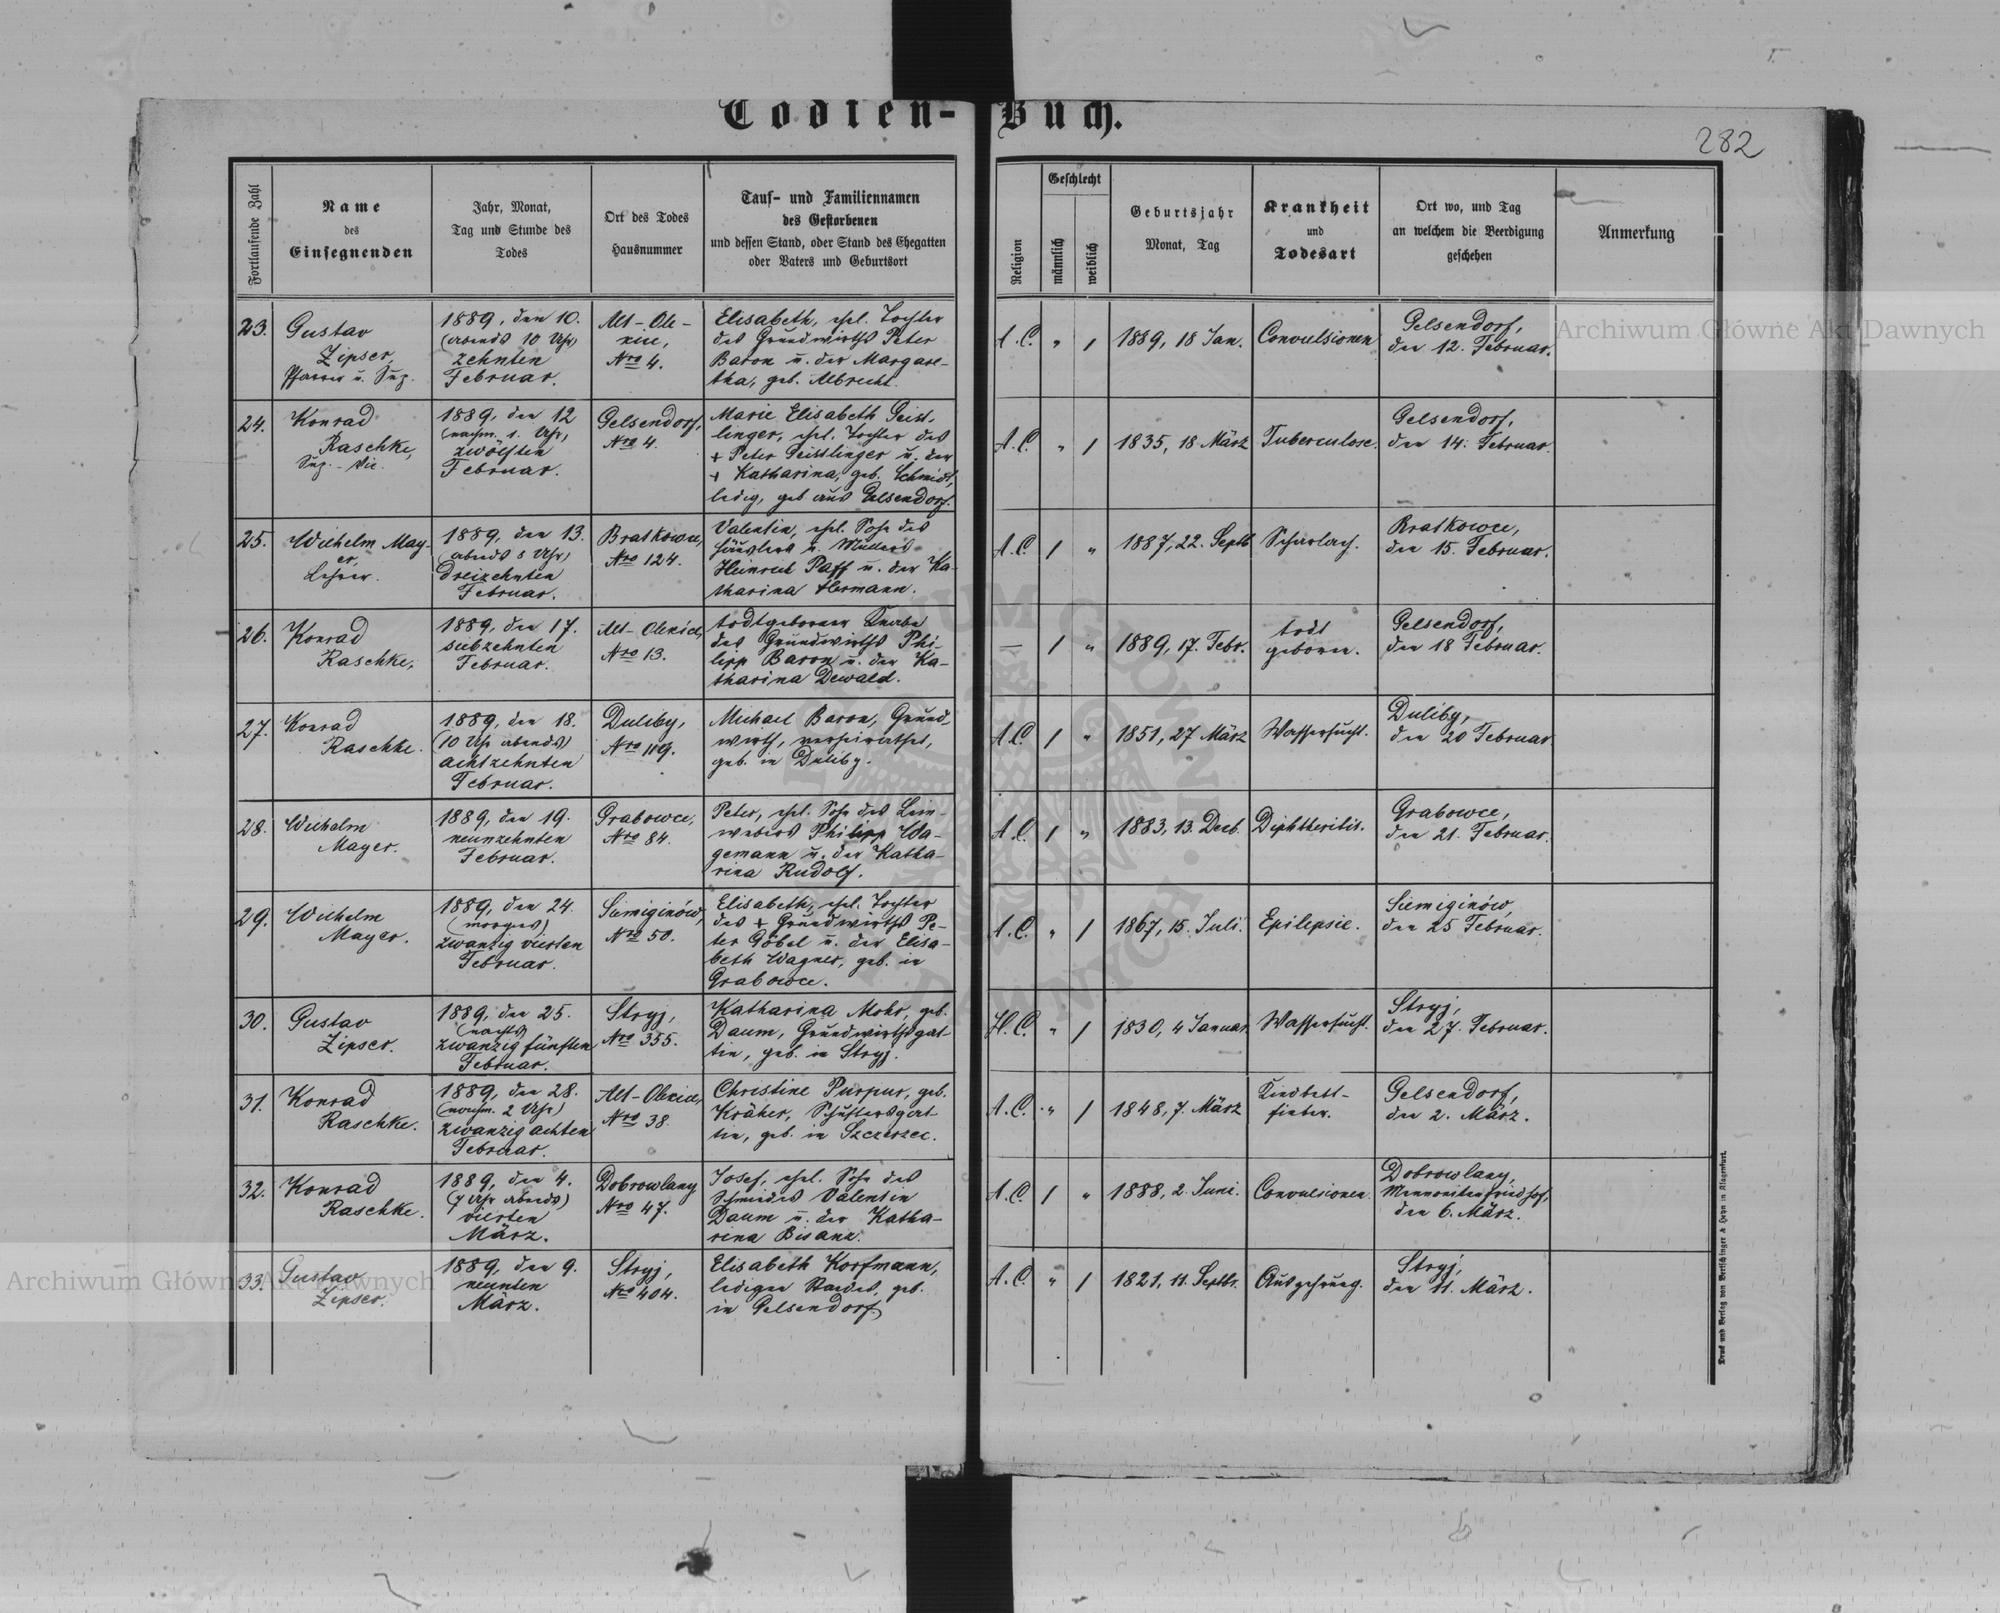 Todten-Buch.
282
Fortlaufende Zahl
Name
des
Einsegnenden
Jahr, Monat,
Tag und Stunde des
Todes
Ort des Todes
Hausnummer
Tauf- und Familiennamen
des Gestorbenen
und dessen Stand, oder Stand des Ehegatten
oder Vaters und Geburtsort
Religion
Geschlecht
männlich
weiblich
Geburtsjahr
Monat, Tag
Krankheit
und
Todesart
Ort wo, und Tag
an welchem die Beerdigung
geschehen
Anmerkung
23.
Gustav
Zipser,
Pfarrer u. Sup.
1889, den 10.
(abends 10 Uhr)
zehnten
Februar.
Alt-Ole-
xice,
Nro 4.
Elisabeth, ehel. Tochter
des Grundwirths Peter
Baron u. der Margare-
tha, geb. Albrecht.
A.C. " 1
1889, 18 Jan.
Convulsionen
Gelsendorf,
den 12. Februar.
24.
Konrad
Raschke,
Sup.-Vic.
1889, den 12
(nachm. 1. Uhr)
zwölften
Februar.
Gelsendorf,
Nro 4.
Marie Elisabeth Geist-
linger, ehel. Tochter des
+ Peter Geisslinger u. der
+ Katharina, geb. Schmidt,
ledig, geb. aus Gelsendorf.
A.C. " 1
1835, 18 März
Tuberculose.
Gelsendorf,
den 14. Februar.
25.
Wilhelm May-
er,
Lehrer.
1889, den 13.
(abends 8 Uhr)
dreizehnten
Februar.
Bratkowce,
Nro 124.
Valentin, ehel. Sohn des
Häuslers u. Müllers
Heinrich Paff u. der Ka-
tharina Hermann.
A.C. 1 "
1887, 22. Septb
Scharlach.
Bratkowce,
den 15. Februar.
26.
Konrad
Raschke,
1889, den 17.
siebzehnten
Februar.
Alt-Olexice,
Nro 13.
todtgeborner Knabe
des Grundwirths Phi-
lipp Baron u. der Ka-
tharina Dewald.
— 1 "
1889, 17. Febr.
todt
geboren.
Gelsendorf,
den 18 Februar.
27.
Konrad
Raschke.
1889, den 18.
(10 Uhr abends)
achtzehnten
Februar.
Duliby,
Nro 119.
Michael Baron, Grund-
wirth, verheirathet,
geb. in Duliby.
A.C. 1 "
1851, 27 März
Wassersucht.
Duliby,
den 20 Februar.
28.
Wilhelm
Mayer.
1889, den 19.
neunzehnten
Februar.
Grabowce,
Nro 84.
Peter, ehel. Sohn des Lein-
webers Philipp Wa-
gemann u. der Katha-
rina Rudolf.
A.C. 1 "
1883, 13. Decb.
Diphtheritis.
Grabowce,
den 21. Februar.
29.
Wilhelm
Mayer.
1889, den 24.
(morgens)
zwanzig vierten
Februar.
Siemiginów,
Nro 50.
Elisabeth, ehel. Tochter
des + Grundwirths Pe-
ter Göbel u. der Elisa-
beth Wagner, geb. in
Grabowce.
A.C. " 1
1867, 15. Juli.
Epilepsie.
Siemiginów,
den 25 Februar.
30.
Gustav
Zipser.
1889, den 25.
(nachts)
zwanzig fünften
Februar.
Stryj,
Nro 355.
Katharina Mohr, geb.
Daum, Grundwirthsgat-
tin, geb. in Stryj.
H.C. " 1
1830, 4 Januar
Wassersucht.
Stryj,
den 27. Februar.
31.
Konrad
Raschke.
1889, den 28.
(nachm. 2 Uhr)
zwanzig achten
Februar.
Alt-Olexice,
Nro 38.
Christine Purpur, geb.
Kräher, Schustersgat-
tin, geb. in Szczerzec.
A.C. " 1
1848, 7. März
Kindbett-
fieber.
Gelsendorf,
den 2. März.
32.
Konrad
Raschke.
1889, den 4.
(7 Uhr abends)
vierten
März.
Dobrowlany
Nro 47.
Josef, ehel. Sohn des
Schmides Valentin
Daum u. der Katha-
rina Bisanz.
A.C. 1 "
1888, 2. Juni.
Convulsionen.
Dobrowlany,
Mennonitenfriedhof,
den 6. März.
33.
Gustav
Zipser.
1889, den 9.
neunten
März.
Stryj,
Nro 404.
Elisabeth Korfmann,
ledigen Standes, geb.
in Gelsendorf.
A.C. " 1
1821, 11. Septbr.
Auszehrung.
Stryj,
den 11. März.
Druck und Verlag von Bertschinger & Heyn in Klagenfurt.
Archiwum Główne Akt Dawnych
Archiwum Główne Akt Dawnych